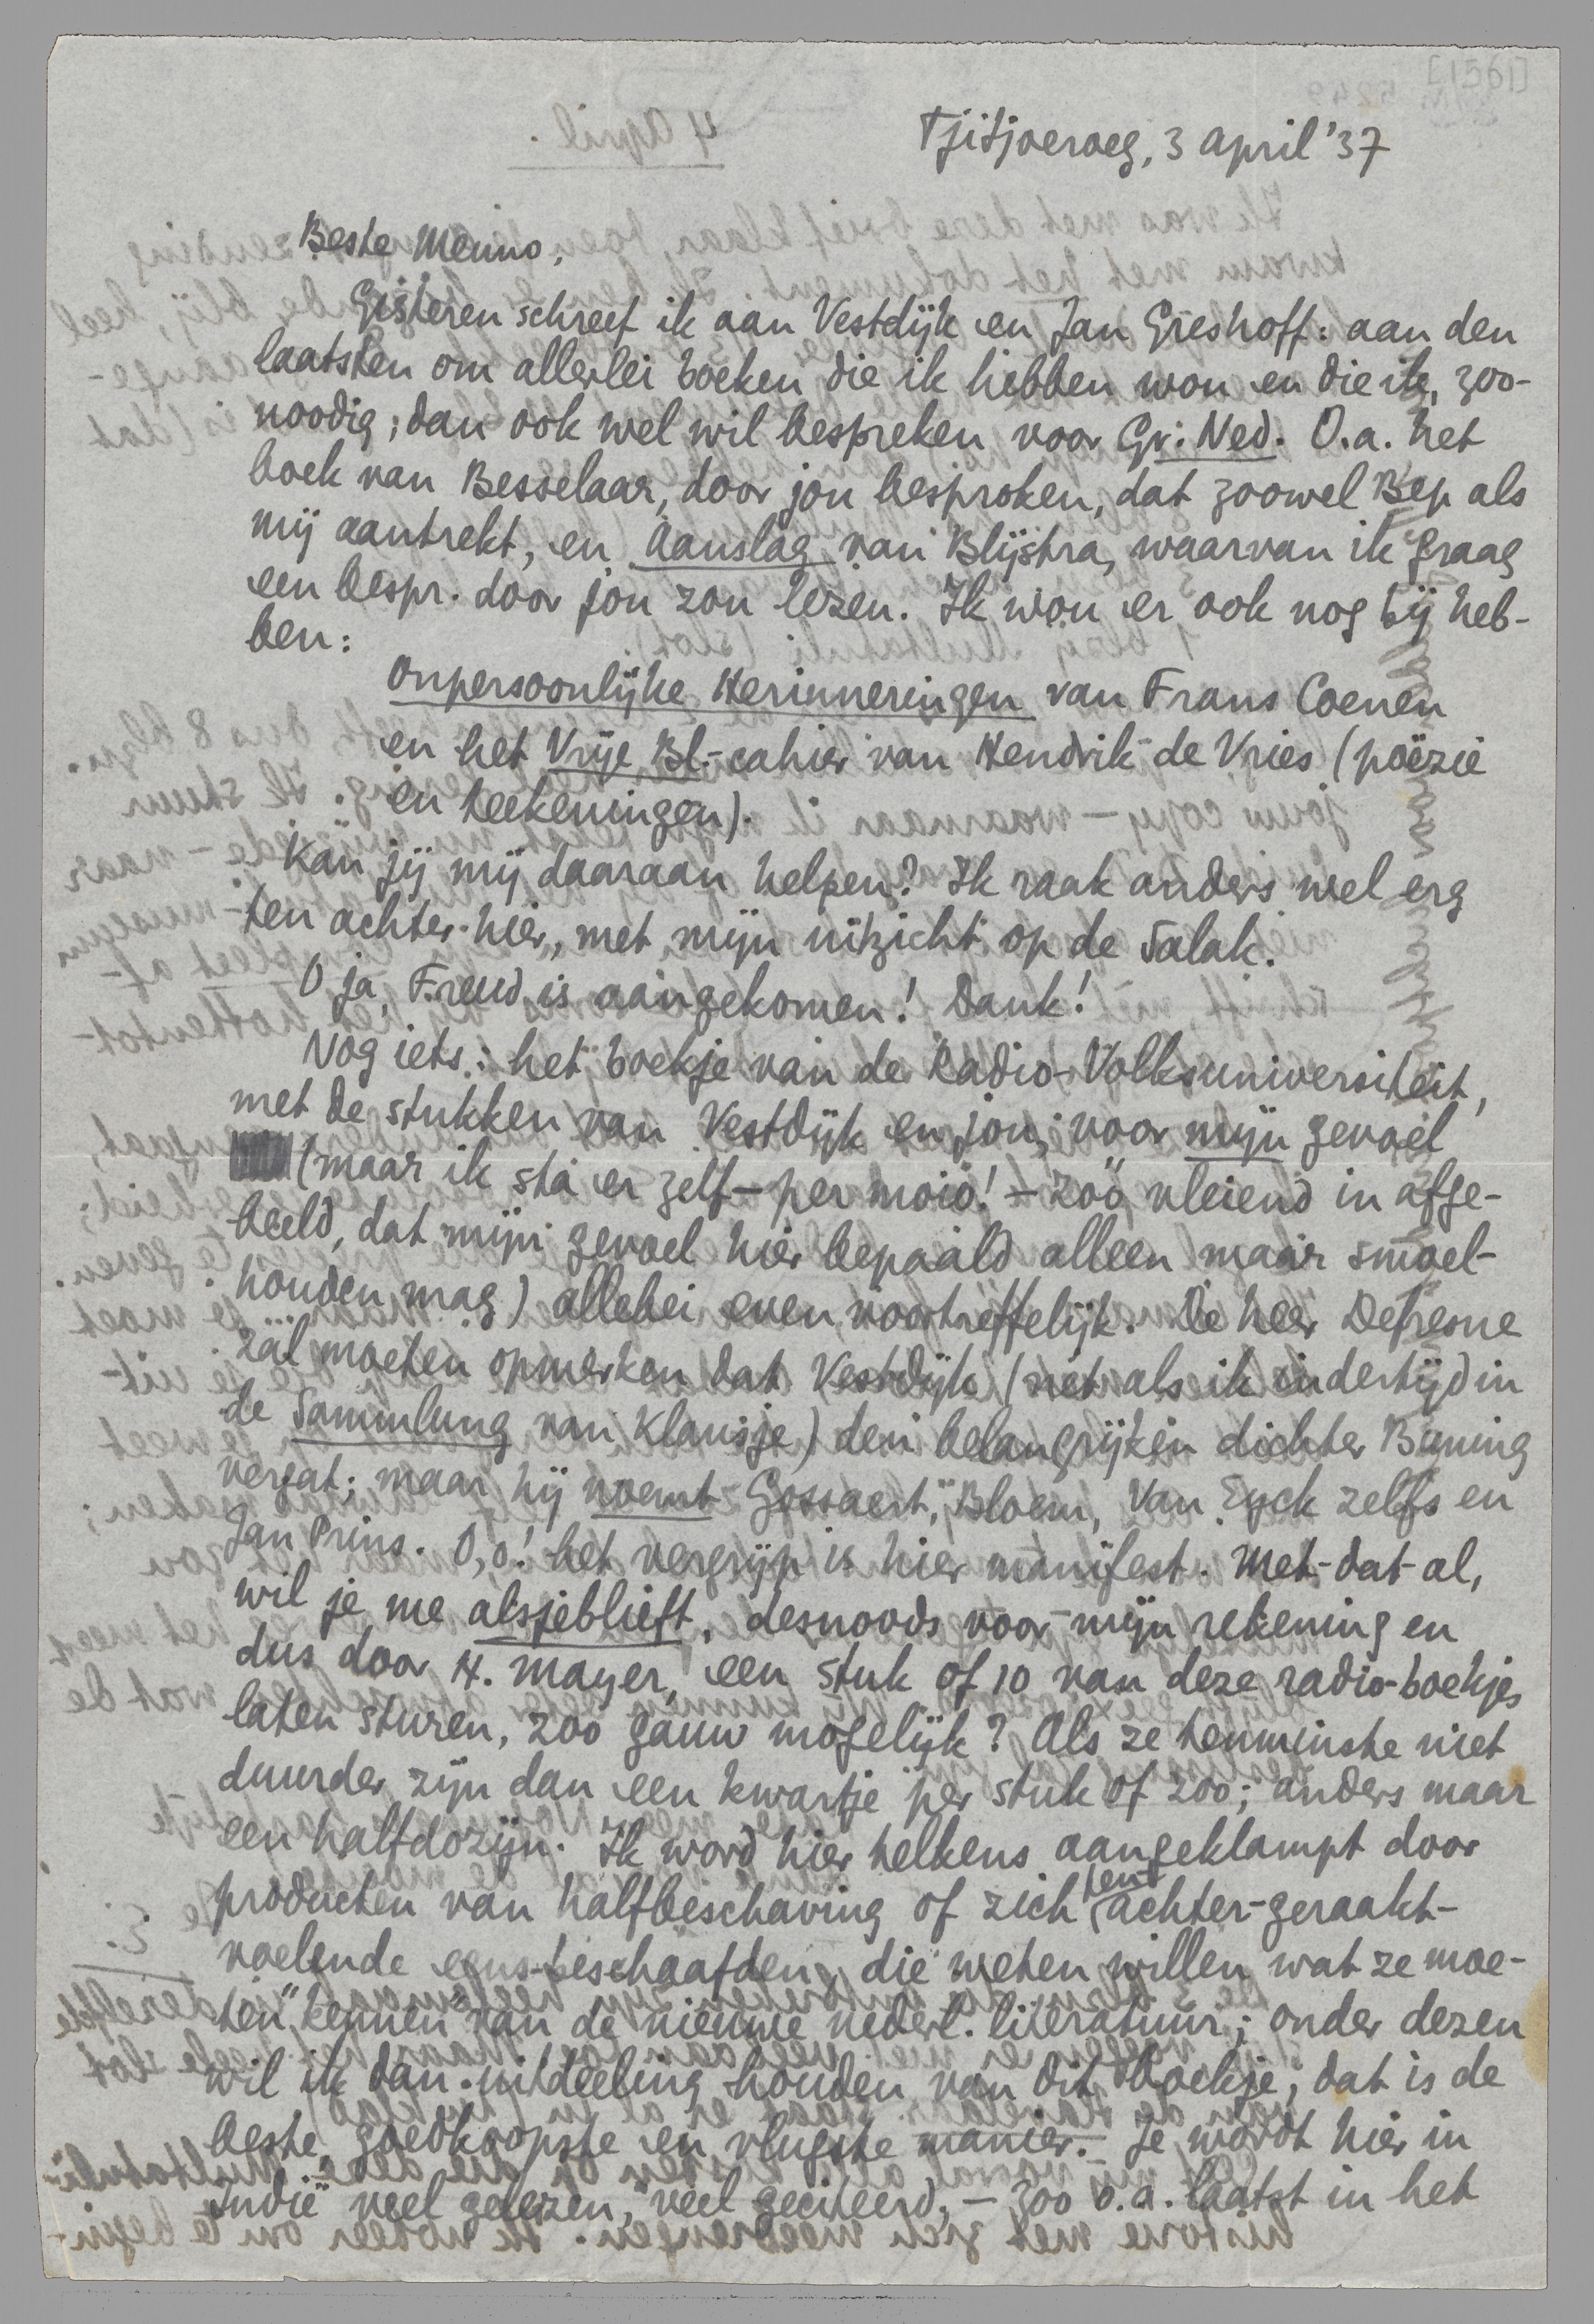 [1561]
Tjitjoeroeg, 3 april '37
Beste Menno,
Gisteren schreef ik aan Vestdijk en Jan Greshoff: aan den
laatsten om allerlei boeken die ik hebben wou en die ik, zoo-
noodig, dan ook wel wil bespreken voor Gr. Ned. O.a. het
boek van Besselaar, door jou besproken, dat zoowel Bep als
mij aantrekt, en Aanslag van Blijstra, waarvan ik graag
een bespr. door jou zou lezen. Ik wou er ook nog bij heb-
ben:
Onpersoonlijke Herinneringen van Frans Coenen
en het Vrije Bl.-cahier van Hendrik de Vries (poëzie
en teekeningen).
Kan jij mij daaraan helpen? Ik raak anders wel erg
ten achter hier, met mijn uitzicht op de Salak.
O ja, Freud is aangekomen! Dank!
Nog iets: het boekje van de Radio-Volksuniversiteit,
met de stukken van Vestdijk en jou, voor mijn gevoel
(maar ik sta er zelf – per moio! – zóó vleiend in afge-
beeld, dat mijn gevoel hier bepaald alleen maar smoel-
houden mag) allebei even voortreffelijk. De heer Defresne
zal moeten opmerken dat Vestdijk (net als ik indertijd in
de Sammlung van Klausje) den belangrijken dichter Buning
vergat; maar hij noemt Gossaert, Bloem, Van Eyck zelfs en
Jan Prins. O, o! het vergrijp is hier manifest. Met-dat-al,
wil je me alsjeblieft, desnoods voor mijn rekening en
dus door H. Mayer, een stuk of 10 van deze radio-boekjes
laten sturen, zoo gauw mogelijk? Als ze tenminste niet
duurder zijn dan een kwartje per stuk of zoo; anders maar
een halfdozijn. Ik word hier telkens aangeklampt door
producten van halfbeschaving of zich ten achter-geraakt-
voelende eens-beschaafden, die weten willen wat ze „moe-
ten" kennen van de nieuwe nederl. literatuur; onder dezen
wil ik dan uitdeeling houden van dit boekje, dat is de
beste, goedkoopste en vlugste manier. Je wordt hier in
Indië veel gelezen, veel geciteerd, – zoo o.a. laatst in het